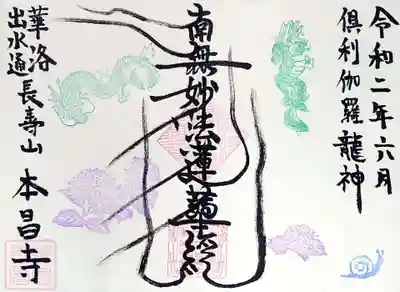 令和二年六月
倶利伽羅龍神
南無妙法蓮華経
華洛
出水通
長寿山
本昌寺